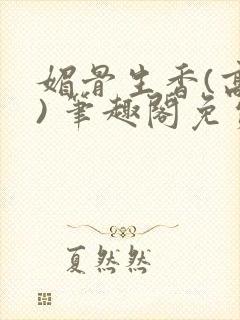 媚骨生香(高
)笔趣阁免
夏然然